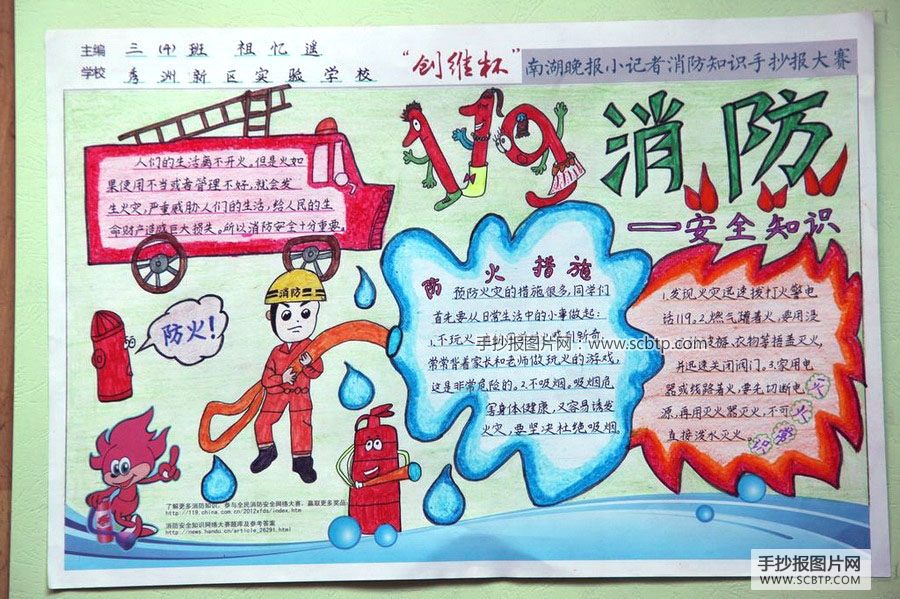 主编 三(4)班 祖忆遥
学校 秀洲新区实验学校
"创维杯" 南湖晚报小记者消防知识手抄报大赛
119 消防
——安全知识
人们的生活离不开火。但是火如
果使用不当或者管理不好,就会发
生火灾,严重威胁人们的生活,给人民的生
命财产造成巨大损失。所以消防安全十分重要。
消防
防火!
防火措施
预防火灾的措施很多,同学们
首先要从日常生活中的小事做起:
1.不玩火。
常常背着家长和老师做玩火的游戏,
这是非常危险的。2.不吸烟。吸烟危
害身体健康,又容易诱发
火灾,要坚决杜绝吸烟。
1.发现火灾迅速拨打火警电
话119。2.燃气罐着火,要用浸
衣物等捂盖灭火,
并迅速关闭阀门。3.家用电
器或线路着火,要先切断电
源,再用灭火器灭火,不可
直接泼水灭火。
灭火常识
手抄报图片网:www.scbtp.com
了解更多消防知识,参与全民消防安全网络大赛,赢取更多奖品:
http://119.china.com.cn/2012xfds/index.htm
消防安全知识网络大赛题库及参考答案
http://news.handu.cn/article_26291.html
手抄报图片网
WWW.SCBTP.COM